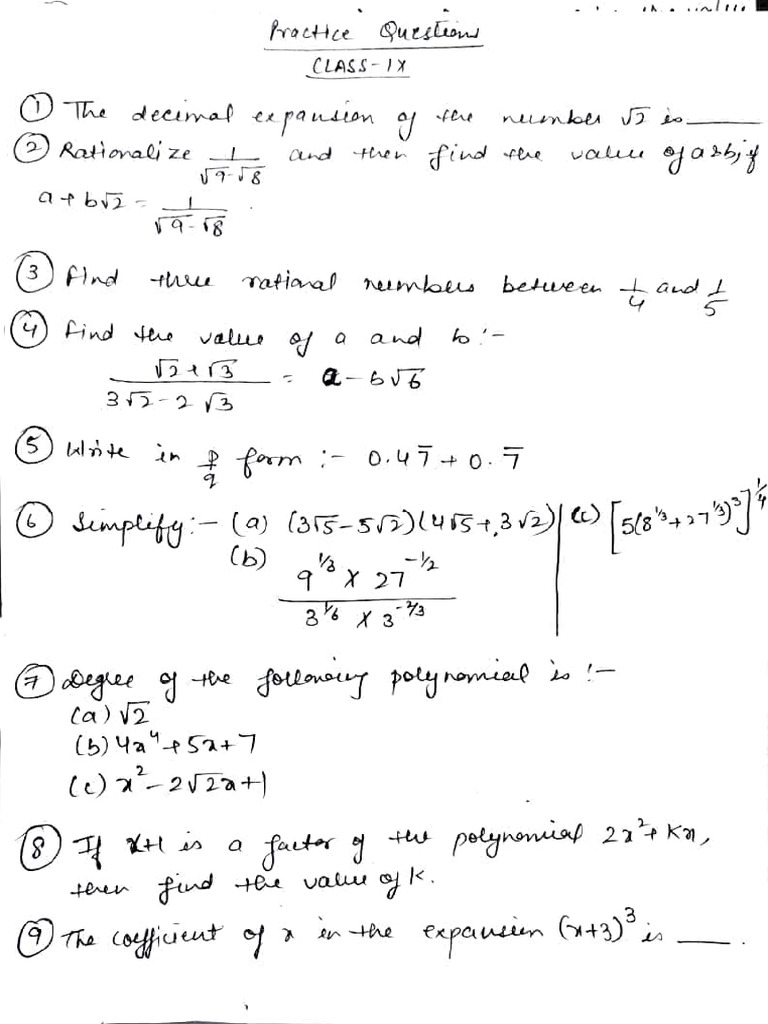 Practice Questions
CLASS-IX
① The decimal expansion of the number √2 is ______
② Rationalize 1/(√9-√8) and then find the value of a & b, if
a+b√2 = 1/(√9-√8).
③ Find three rational numbers between 1/4 and 1/5
④ Find the value of a and b :-
(√2+√3)/(3√2-2√3) = a-b√6
⑤ Write in p/q form :- 0.47̄ + 0.7̄
⑥ Simplify:- (a) (3√5-5√2)(4√5+3√2) | (c) [5(8^1/3+27^1/3)^3]^1/4
(b) (9^1/3 × 27^-1/2)/(3^1/6 × 3^-2/3)
⑦ Degree of the following polynomial is :-
(a) √2
(b) 4x⁴+5x+7
(c) x²-2√2x+1
⑧ If x+1 is a factor of the polynomial 2x²+Kx,
then find the value of k.
⑨ The coefficient of x in the expansion (x+3)³ is ____.